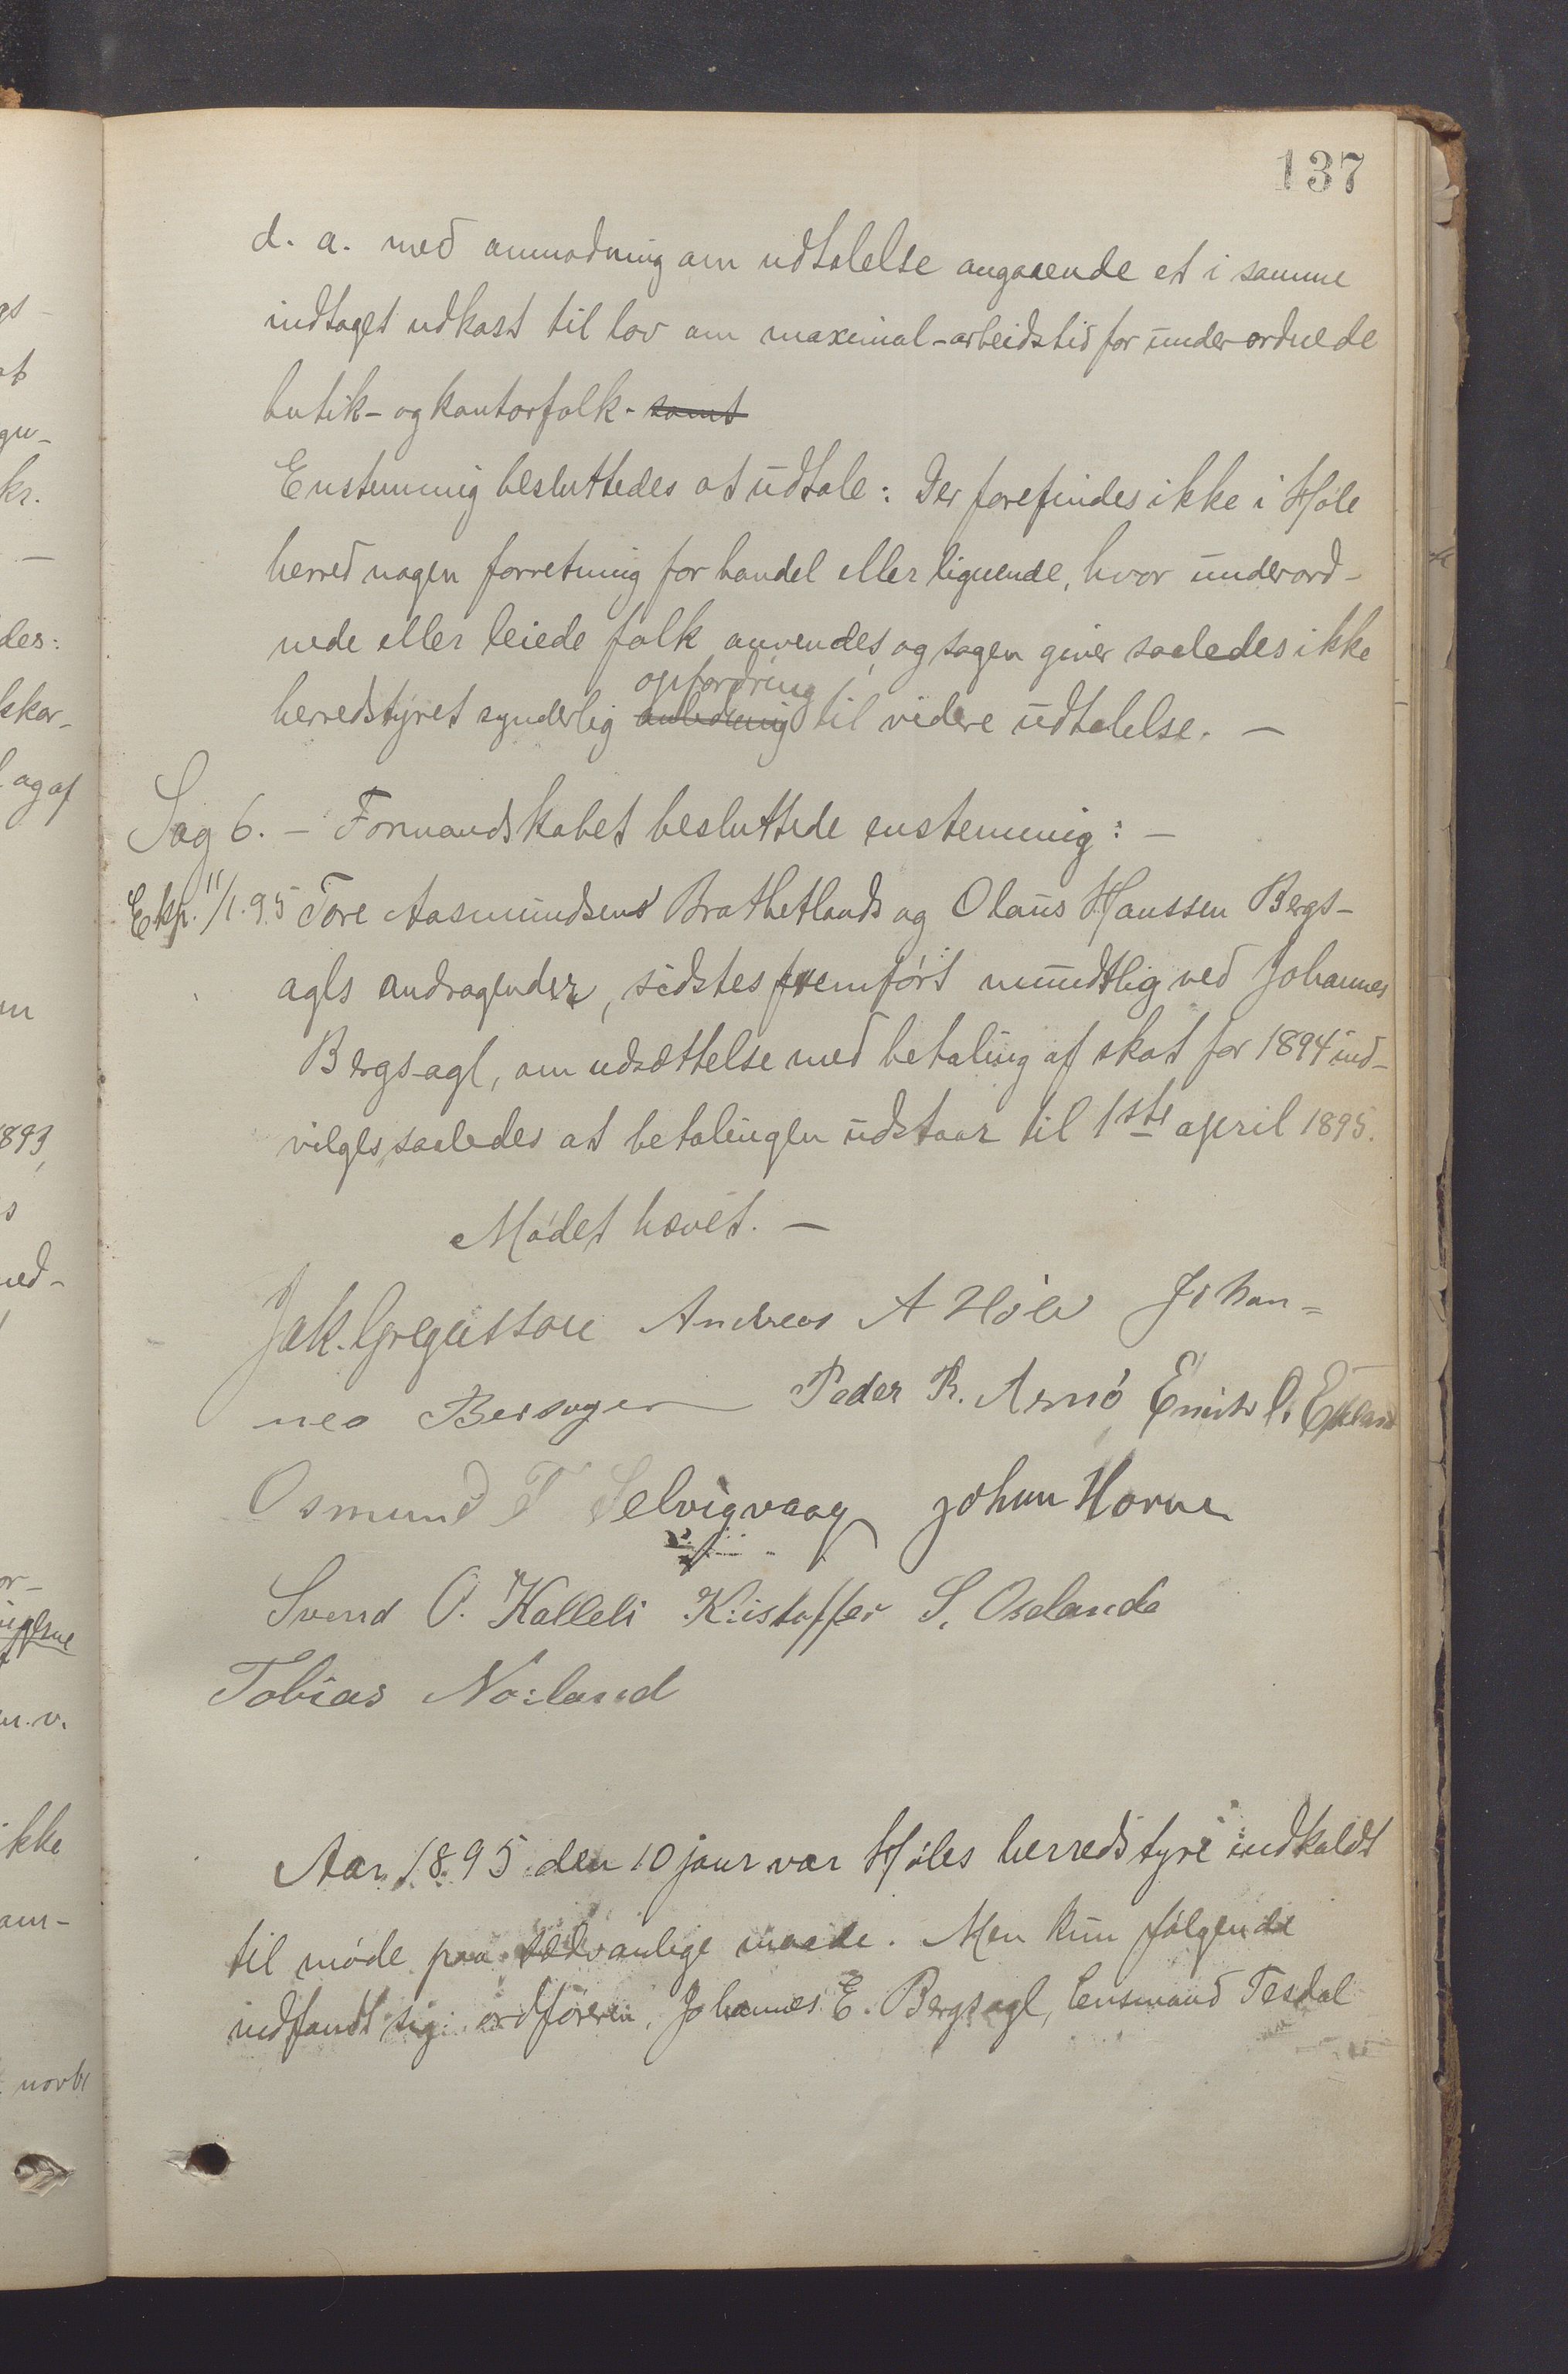 137
d. a. med anmodning om udtalelse angaaende et i samme
indtaget udkast til lov om maximal-arbeidstid for underordnede
butik- og kontorfolk. samt
Enstemmig besluttedes at udtale: Der forefindes ikke i Høle
herred nogen forretning for handel eller lignende, hvor underord-
nede eller leiede folk anvendes, og sagen giver saaledes ikke
opfordring
herredstyret synderlig anledning til videre udtalelse. —
Sag 6. — Formandskabet besluttede enstemmig: —
Eksp. 11/1.95 Tore Aasmundsens Brathetlands og Olaus Hanssen Bergs-
agls andragender, sidstes fremført mundtlig ved Johannes
Bergsagl, om udsættelse med betaling af skat for 1894 ind-
vilges, saaledes at betalingen udstaar til 1ste april 1895.
Mødet hævet. —
Jak. Gregussen Andreas A Høle Johan=
nes Peder R. Arnø O.
Osmund T Selvigvaag Johan
Svend O. Kalleli Kristoffer S. Oselande
Tobias Norland
Aar 1895 den 10 janr var Høles herredstyre indkaldt
til møde paa sædvanlige maade. Men kun følgende
indfandt sig: ordføreren, Johannes E. Bergsagl, lensmand Tesdal
gs-
at
gu-
kr.
—
des:
kkar-
og af
1893,
s
ved-
or-
m. v.
ikke
am-